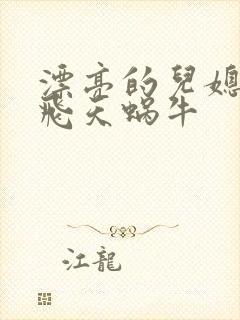 漂亮的兒媳
飛天蝸牛
江龍